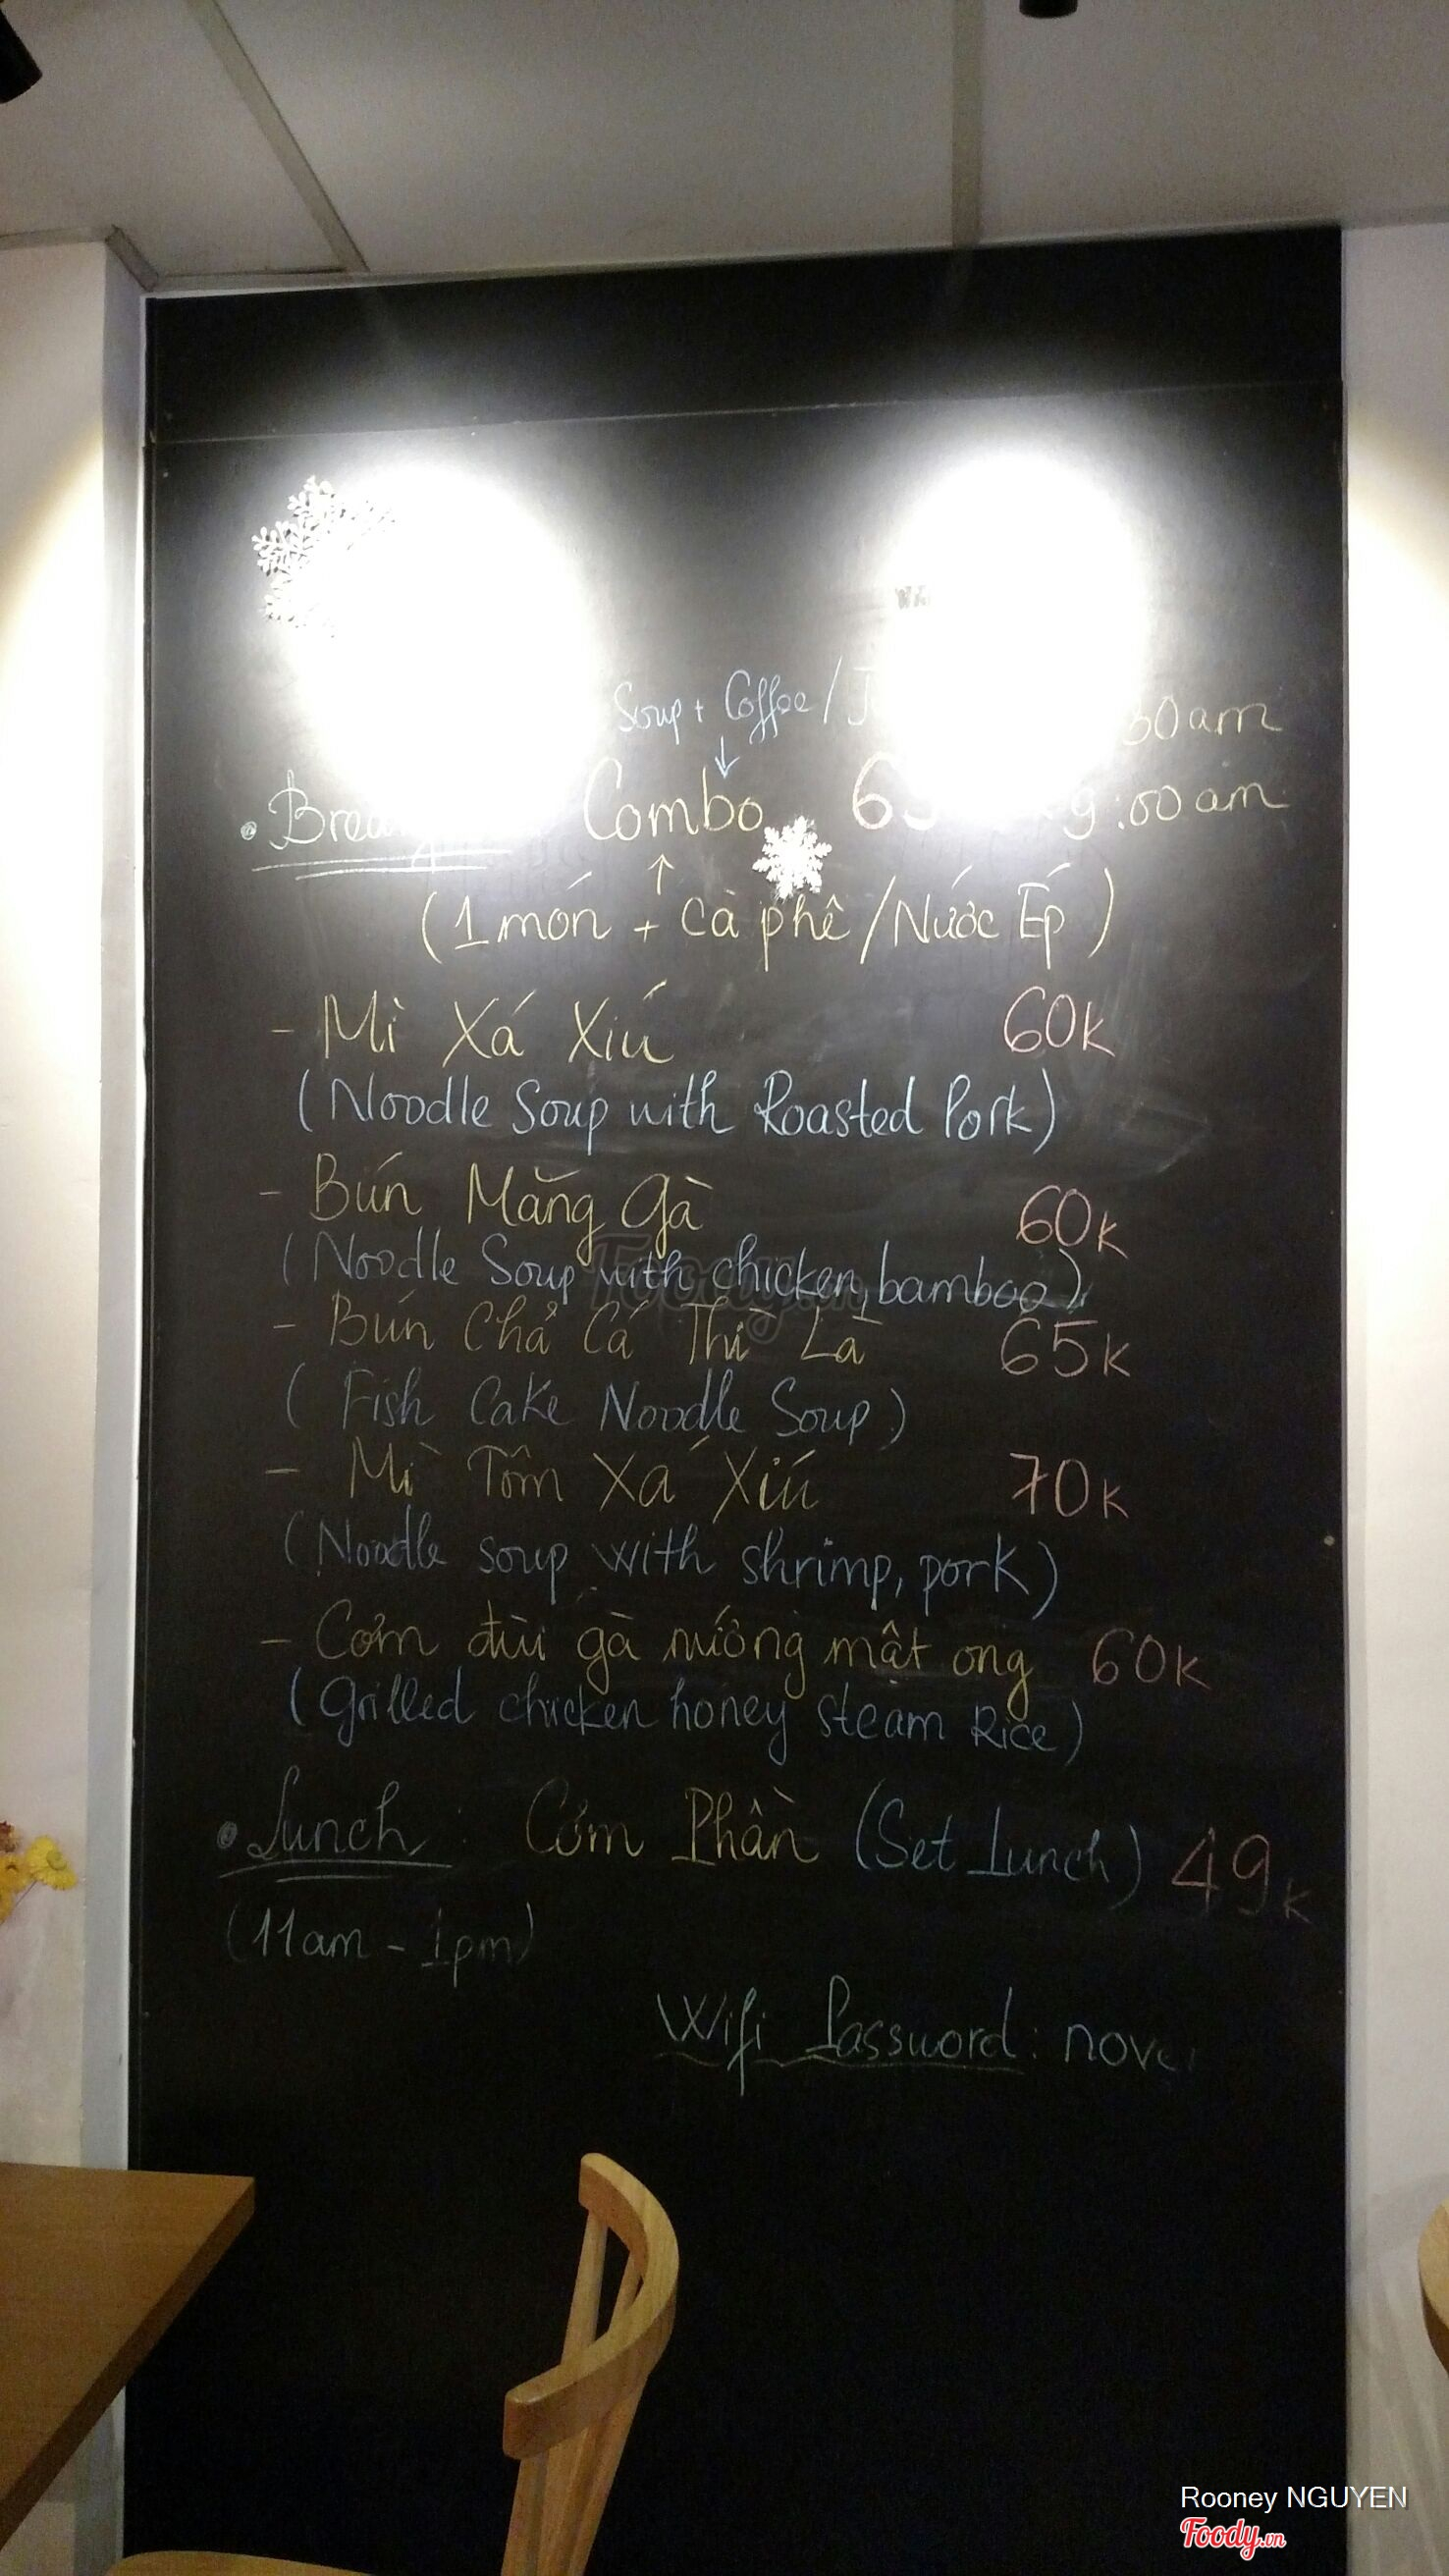 Soup + Coffee /
30am
Combo 9:00 am
(1 món + Cà phê / Nước Ép)
- Mì Xá Xíu 60k
(Noodle Soup with Roasted Pork)
- Bún Măng Gà 60k
(Noodle Soup with chicken, bamboo)
- Bún Chả Cá Thì Là 65k
(Fish Cake Noodle Soup)
- Mì Tôm Xá Xíu 70k
(Noodle soup with shrimp, pork)
- Cơm đùi gà nướng mật ong 60k
(Grilled chicken honey steam Rice)
• Lunch : Cơm Phần (Set Lunch) 49k
(11am - 1pm)
Wifi Password:
Foody.vn
Rooney NGUYEN
Foody.vn